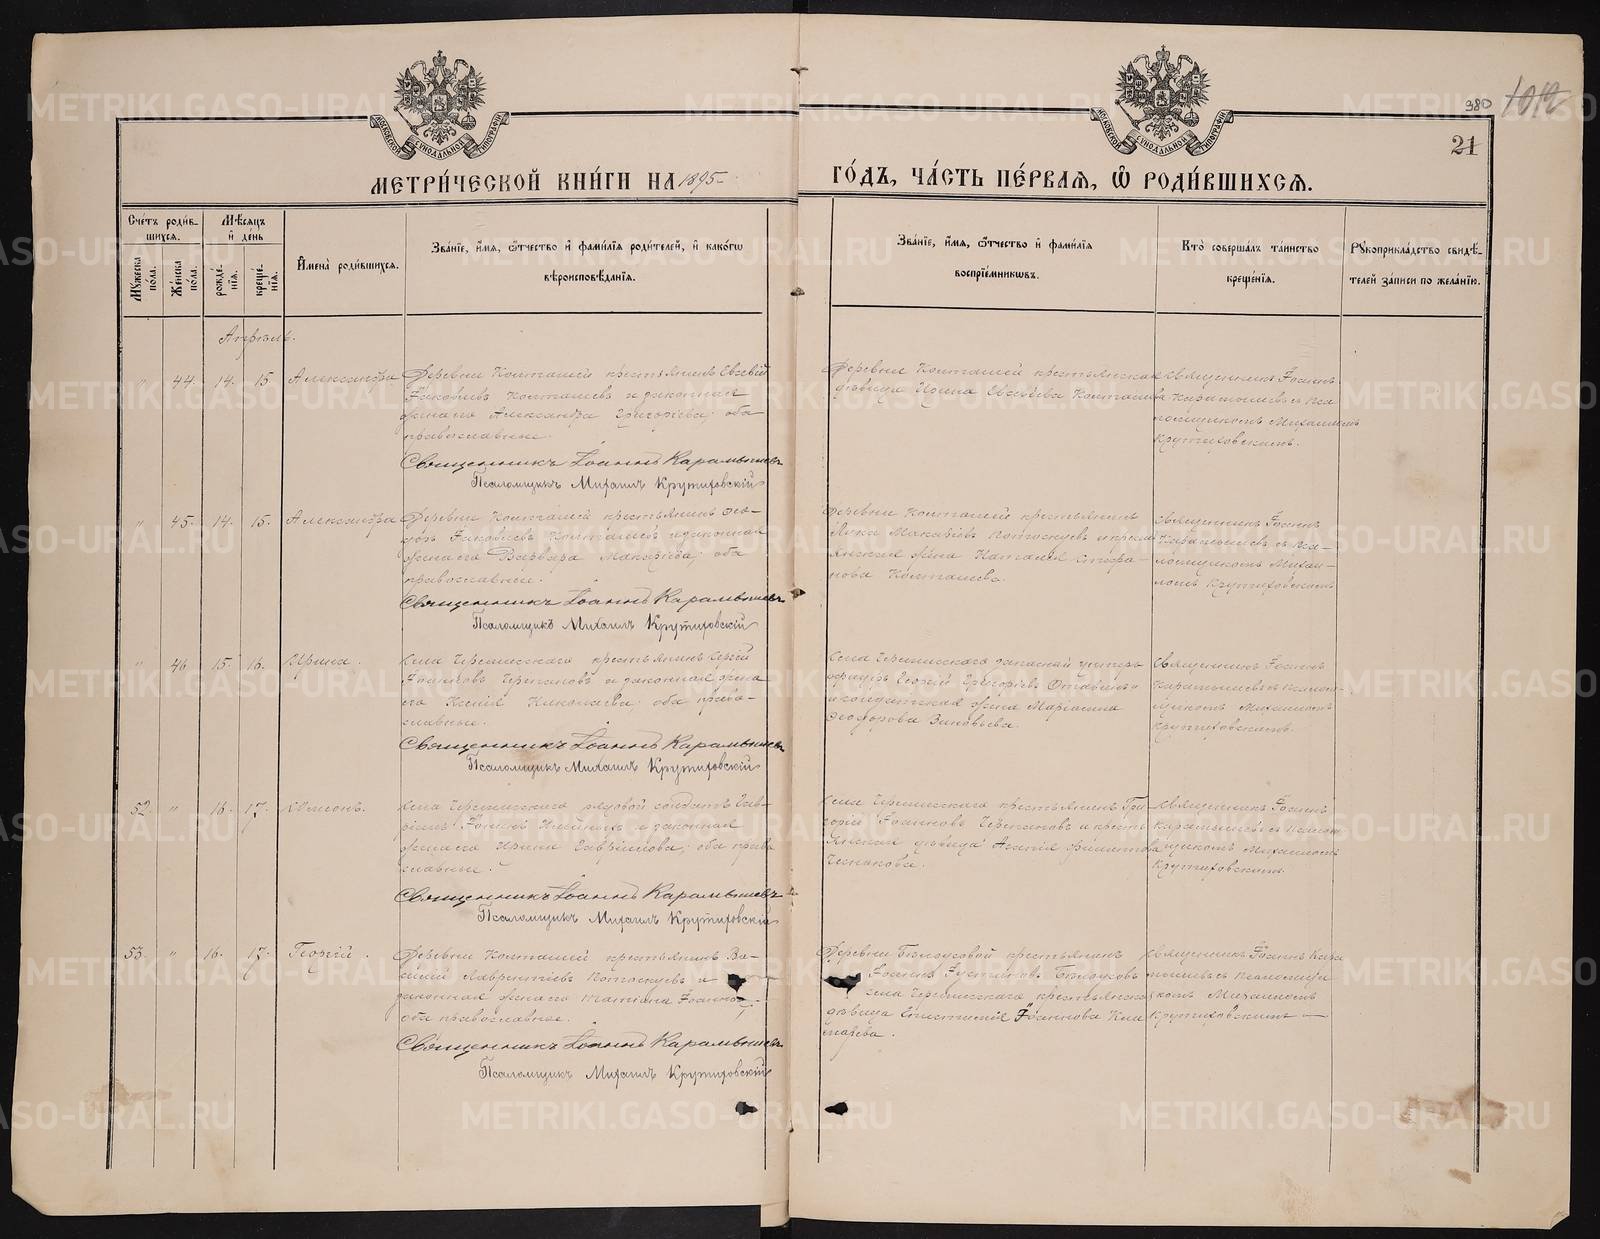 МОСКОВСКОЙ СѴНОДАЛЬНОЙ ТИПОГРАФІИ
МОСКОВСКОЙ СѴНОДАЛЬНОЙ ТИПОГРАФІИ
380
1012
21
МЕТРИ́ЧЕСКОЙ КНИ́ГИ НА 1895
ГО́ДЪ, ЧА́СТЬ ПЕ́РВАѦ, Ѡ҆ РОДИ́ВШИХСѦ.
Сче́тъ роди́в-
шихся.
Мѣ́сяцъ
и҆ де́нь
Мꙋ́жеска по́ла.
Же́нска по́ла.
рожде́-нїя.
креще́-нїя.
И҆мена̀ роди́вшихся.
Зва́нїе, и҆́мя, ѻ҆́тчество и҆ фами́лїя роди́телей, и҆ како́гѡ
вѣроисповѣ́данїя.
Зва́нїе, и҆́мя, ѻ҆́тчество и҆ фами́лїя
воспрїе́мникѡвъ.
Кто̀ соверша́лъ та́инство
креще́нїя.
Рꙋкоприкла́дство свидѣ́-
телей за́писи по жела́нїю.
Апрѣль.
" 44. 14. 15 Александра
Деревни Колташей крестьянинъ Евсевій
Іаковлевъ Колташевъ и законная
жена его Александра Григорьева; оба
православные.
Священникъ Іоаннъ Карамышевъ
Псаломщикъ Михаилъ Крутиховскій
Деревни Колташей крестьянская
дѣвица Ирина Евсеѣева Колташева
Священникъ Іоаннъ
Карамышевъ съ пса
ломщикомъ Михаиломъ
Крутиховскимъ.
" 45. 14. 15. Александра
Деревни Колташей крестьянинъ Ѳео-
доръ Іаковлевъ Колташевъ и законная
жена его Варвара Макарьева; оба
православные.
Священникъ Іоаннъ Карамышевъ
Псаломщикъ Михаилъ Крутиховскій
Деревни Колташей крестьянинъ
Лука Макаріевъ Потоскуевъ и крест
янская жена Наталія Стефа-
нова Колташева.
Священникъ Іоаннъ
Карамышевъ съ пса-
ломщикомъ Михаи-
ломъ Крутиховскимъ
" 46 15. 16. Ирина.
Села Черемисскаго крестьянинъ Сергій
Іоанновъ Черепановъ и законная жена
его Ксенія Николаева; оба право-
славные.
Священникъ Іоаннъ Карамышевъ
Псаломщикъ Михаилъ Крутиховскій
Села Черемисскаго запасный унтеръ
офицеръ Георгій Григоріевъ
жена Маріамна
Ѳеодорова Зиновьева.
Священникъ Іоаннъ
Карамышевъ съ псалом-
щикомъ Михаиломъ
Крутиховскимъ.
52 " 16. 17. Симеонъ.
Села Черемисскаго рядовой солдатъ Гав-
ріилъ Іоанновъ и законная
жена его Ирина Гавріилова; оба право
славные.
Священникъ Іоаннъ Карамышевъ
Псаломщикъ Михаилъ Крутиховскій
Села Черемисскаго крестьянинъ Гри-
горій Іоанновъ Черепановъ и кресть
янская дѣвица Агапія Филиппова
Чеснокова.
Священникъ Іоаннъ
Карамышевъ съ псалом
щикомъ Михаиломъ
Крутиховскимъ.
53. " 16. 17. Георгій.
Деревни Колташей крестьянинъ Ва-
силій Лаврентіевъ Потоскуевъ и
законная жена его Татіана Іоаннова;
оба православные.
Священникъ Іоаннъ Карамышевъ
Псаломщикъ Михаилъ Крутиховскій
Деревни Бѣлоусовой крестьянинъ
Іоаннъ Бѣлоусовъ
села Черемисскаго крестьянская
дѣвица Іоаннова
Священникъ Іоаннъ Кара
мышевъ съ псаломщи
комъ Михаиломъ
Крутиховскимъ